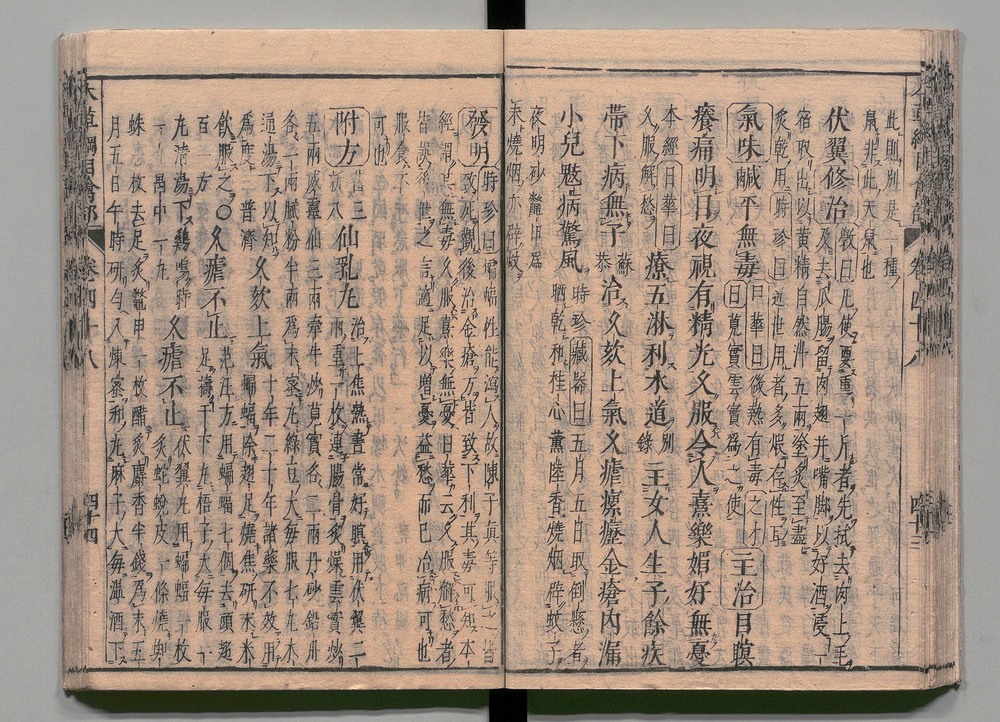 此則別是一種
鼠非此天鼠也
伏翼修治 斆曰凡使要重一斤者先拭去肉上毛
及去爪腸留肉翅并嘴脚以好酒浸一
宿取出以黃精自然汁五兩塗炙至盡
炙乾用時珍曰近世用者多煅存性耳
氣味鹹平無毒 日華曰微熱有毒之才
曰莧實雲實爲之使 主治目瞑
癢痛明目夜視有精光久服令人熹樂媚好無憂
本經日華曰
久服解愁 療五淋利水道 別錄 主女人生子餘疾
帶下病無子 蘇恭 治久欬上氣久瘧瘰癧金瘡內漏
小兒鬾病驚風 時珍 藏器曰五月五日取倒懸者
晒乾和桂心薰陸香燒烟辟蚊子
夜明砂鱉甲爲
末燒烟亦辟蚊
發明 時珍曰蝙蝠性能瀉人故陳子真等服之皆
致死觀後治金瘡方皆致下利其毒可知本
經謂其無毒久服熹樂無憂日華云久服解愁者
皆誤後世之言適足以增憂益愁而已治病可也
服食不
可也
附方 舊三
新八 仙乳丸 治上焦熱晝常好瞑用伏翼二
兩重一枚連腸骨炙燥雲實炒
五兩威靈仙三兩牽牛炒莧實各二兩丹砂鉛丹
各一兩膩粉半兩爲末蜜丸綠豆大每服七丸木
通湯下以知
爲度 普濟 久欬上氣 十年二十年諸藥不效用
蝙蝠除翅足燒焦研末米
飲服之 ○久瘧不止 范汪方用蝙蝠七個去頭翅
足擣千下丸梧子大每服一
百一方
九清湯下鷄鳴時
一丸禺中一丸 久瘧不止 伏翼丸用蝙蝠一枚
炙蛇蛻皮一條燒蜘
蛛五枚去足炙鱉甲一枚醋炙麝香半錢爲末五
月五日午時研勻入煉蜜和丸麻子大每溫酒下
卷四十八
四十三
卷四十八
四十四